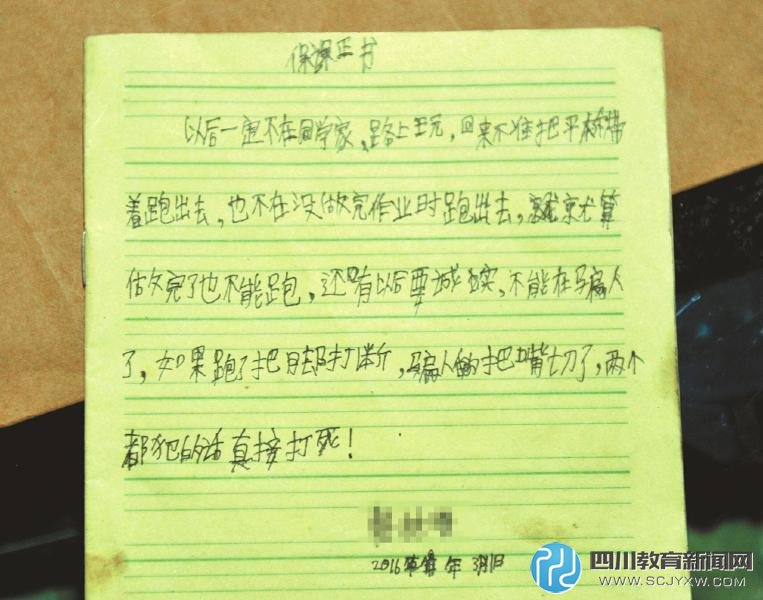 保课正书
以后一定不在同学家、路上玩，回来不准把平板带
着跑出去，也不在没做完作业时跑出去，就算
做完了也不能跑，还有以后要诚实，不能在骗人
了，如果跑了把脚打断，骗人的把嘴切了，两个
都犯的话真接打死！
2016年3月1日
四川教育新闻网
WWW.SCJYXW.COM